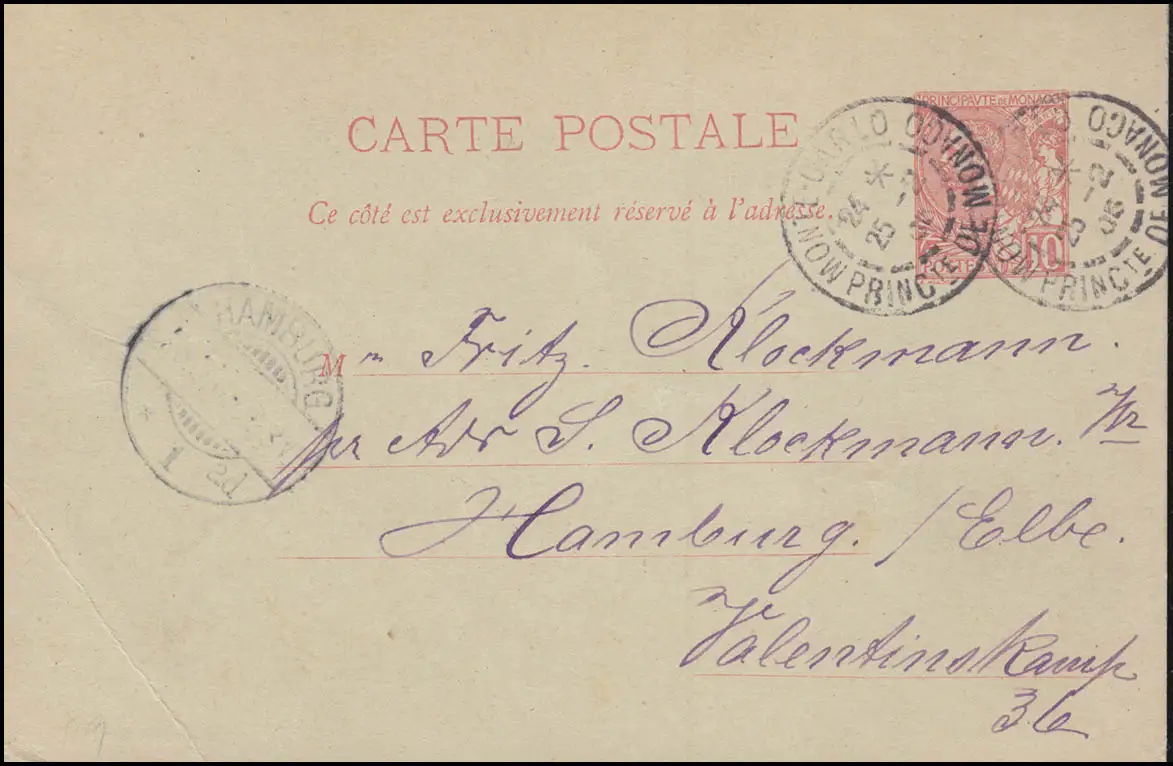 CARTE POSTALE
Ce côté est exclusivement réservé à l'adresse.
PRINCIPAVTE DE MONACO
10
MONTE-CARLO
PRINCTE DE MONACO
24
25 -2
MONACO
PRINCTE DE MONACO
25 -2
06
HAMBURG
1
M n Fritz. Klockmann.
pr Adr S. Klockmann.
Hamburg. / Elbe.
Valentinskamp
36